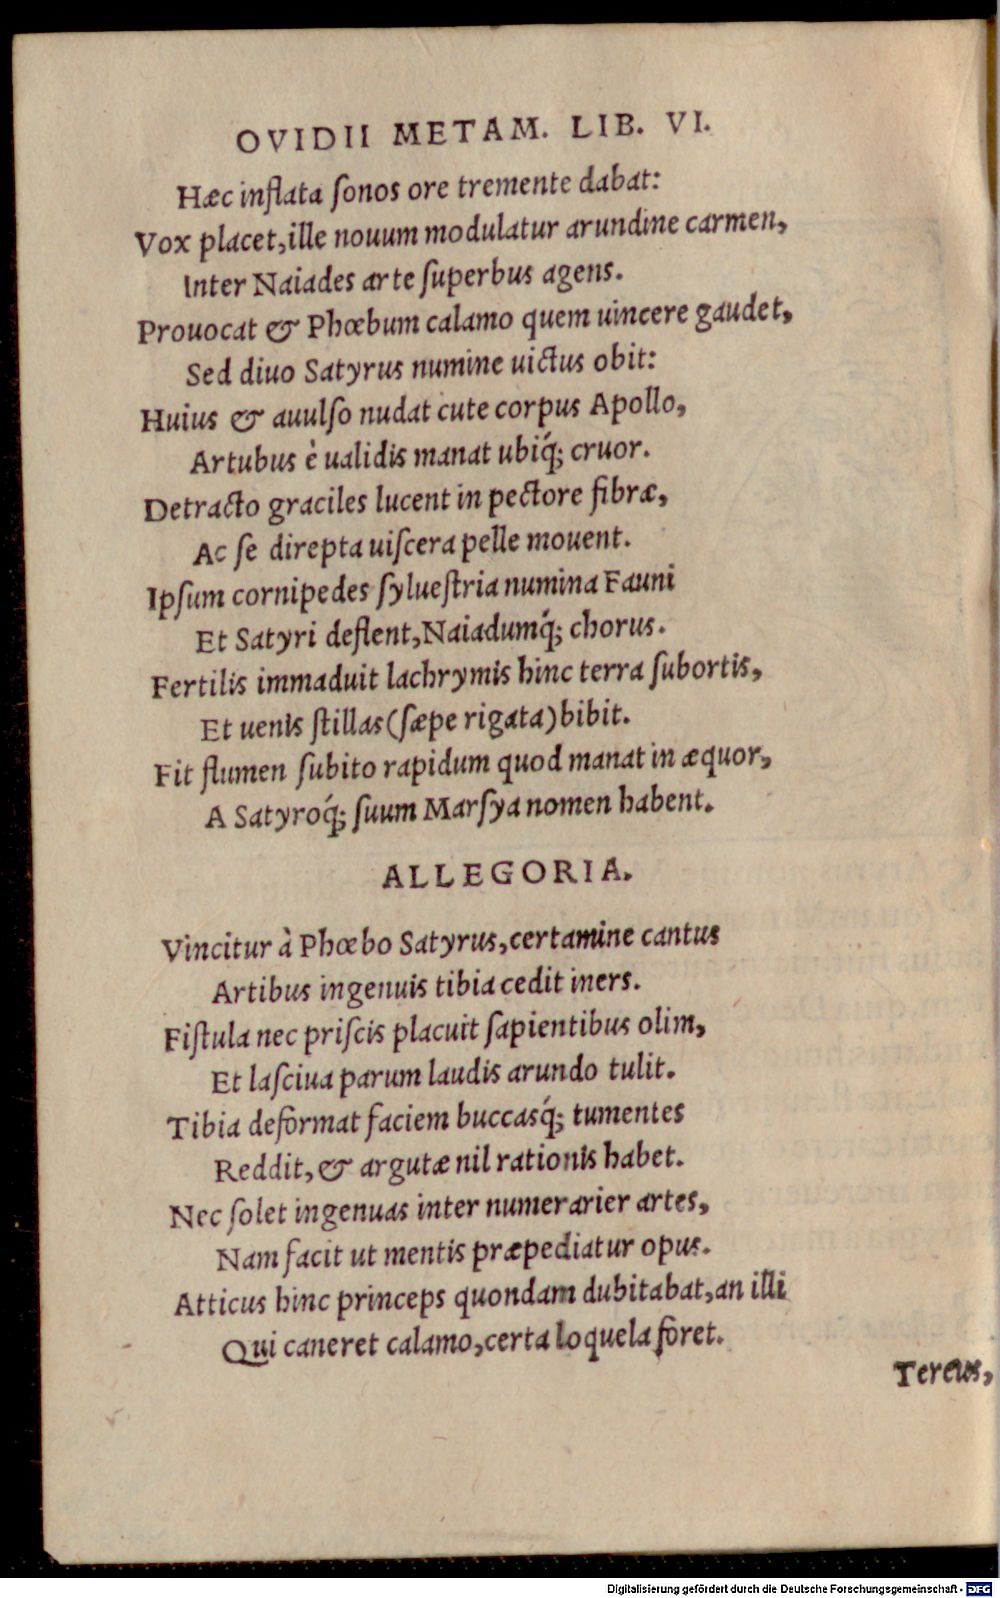 OVIDII METAM. LIB. VI.
Hæc inflata ſonos ore tremente dabat:
Vox placet, ille nouum modulatur arundine carmen,
Inter Naiades arte ſuperbus agens.
Prouocat & Phœbum calamo quem uincere gaudet,
Sed diuo Satyrus numine uictus obit:
Huius & auulſo nudat cute corpus Apollo,
Artubus è ualidis manat ubiq́; cruor.
Detracto graciles lucent in pectore fibræ,
Ac ſe direpta uiſcera pelle mouent.
Ipſum cornipedes ſylueſtria numina Fauni
Et Satyri deflent, Naiadumq́; chorus.
Fertilis immaduit lachrymis hinc terra ſubortis,
Et uenis ſtillas (ſæpe rigata) bibit.
Fit flumen ſubito rapidum quod manat in æquor,
A Satyroq́; ſuum Marſya nomen habent.
ALLEGORIA.
Vincitur à Phœbo Satyrus, certamine cantus
Artibus ingenuis tibia cedit iners.
Fiſtula nec priſcis placuit ſapientibus olim,
Et laſciua parum laudis arundo tulit.
Tibia deformat faciem buccasq́; tumentes
Reddit, & argutæ nil rationis habet.
Nec ſolet ingenuas inter numerarier artes,
Nam facit ut mentis præpediatur opus.
Atticus hinc princeps quondam dubitabat, an illi
Qui caneret calamo, certa loquela foret.
Tereus,
Digitalisierung gefördert durch die Deutsche Forschungsgemeinschaft - DFG